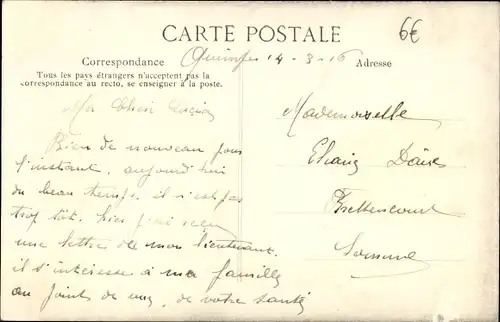 CARTE POSTALE
6€
Correspondance
14-3-16
Adresse
Tous les pays étrangers n'acceptent pas la
correspondance au recto, se renseigner à la poste.
Ma
Mademoiselle
Rien de nouveau pour
l'instant, aujourd'hui
du beau temps, il n'est pas
trop tôt. hier j'ai reçu
une lettre de mon lieutenant.
il s'intéresse à ma famille
au point de vue, de votre santé
Bettencourt
Somme